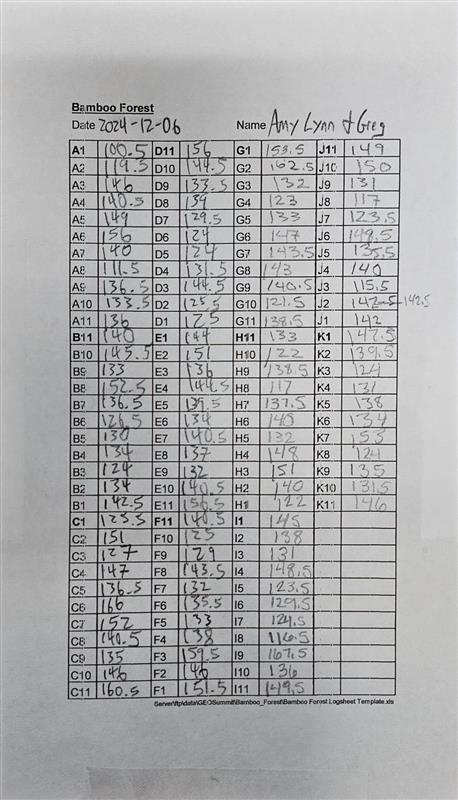 Bamboo Forest
Date 2024-12-06 Name Amy Lynn & Greg
A1 100.5 D11 156 G1 153.5 J11 149
A2 119.5 D10 144.5 G2 162.5 J10 150
A3 146 D9 133.5 G3 132 J9 131
A4 140.5 D8 139 G4 123 J8 117
A5 149 D7 129.5 G5 133 J7 123.5
A6 156 D6 124 G6 147 J6 148.5
A7 140 D5 124 G7 143.5 J5 135.5
A8 111.5 D4 131.5 G8 143 J4 140
A9 136.5 D3 144.5 G9 140.5 J3 115.5
A10 133.5 D2 125.5 G10 121.5 J2 142.5-142.5
A11 136 D1 125 G11 138.5 J1 142
B11 140 E1 144 H11 133 K1 147.5
B10 145.5 E2 151 H10 122 K2 139.5
B9 133 E3 136 H9 138.5 K3 124
B8 152.5 E4 144.5 H8 117 K4 131
B7 136.5 E5 139.5 H7 137.5 K5 138
B6 126.5 E6 134 H6 140 K6 134
B5 130 E7 140.5 H5 132 K7 153
B4 134 E8 137 H4 148 K8 124
B3 124 E9 132 H3 151 K9 135
B2 134 E10 140.5 H2 140 K10 131.5
B1 142.5 E11 150.5 H1 122 K11 146
C1 125.5 F11 140.5 I1 145
C2 151 F10 125 I2 138
C3 127 F9 129 I3 131
C4 147 F8 143.5 I4 148.5
C5 136.5 F7 132 I5 123.5
C6 166 F6 135.5 I6 129.5
C7 152 F5 133 I7 124.5
C8 140.5 F4 138 I8 116.5
C9 135 F3 159.5 I9 167.5
C10 146 F2 146 I10 136
C11 160.5 F1 151.5 I11 149.5
Server\ftp\data\GEOSummit\Bamboo_Forest\Bamboo Forest Logsheet Template.xls